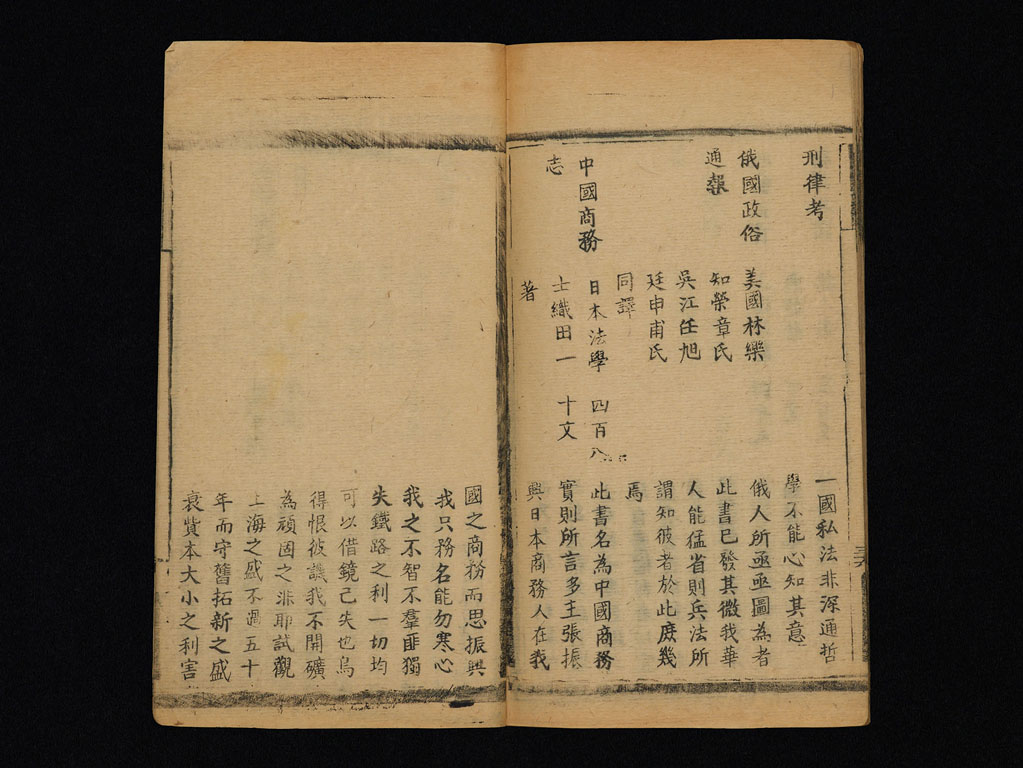 刑律考
一國私法非深通哲
學不能心知其意
俄國政俗
通報
美國林樂
知榮章氏
吳江任旭
廷申甫氏
同譯
俄人所亟亟圖為者
此書已發其微我華
人能猛省則兵法所
謂知彼者於此庶幾
焉
中國商務
志
日本法學
士織田一
著
四百八
十文
此書名為中國商務
實則所言多主張振
興日本商務人在我
國之商務而思振興
我只務名能勿寒心
我之不智不羣匪獨
失鐵路之利一切均
可以借鏡已失也烏
得恨彼譏我不開礦
為頑固之非耶試觀
上海之盛不過五十
年而守舊拓新之盛
衰貲本大小之利害